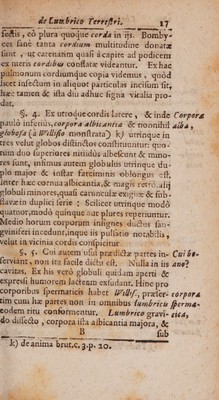 de Lumbrico Terrestri. 17
sectis, eò plura quoque corda in iis. Bomby-
ces sanè tanta cordium multitudine donatæ
sunt, ut catenatim quasi à capite ad podicem
ex uteris cordibus constatæ videantur. Ex hac
pulmonum cordiumque copia videmus, quòd
licet insectum in aliquot particulas incisum sit,
hæc tamen & ista diu adhuc signa vitalia pro-
dat.
§. 4. Ex utroque cordis latere, & inde Corpora
paulò inferiùs, corpora albicantia & nonnihil alba,
globosa (à Willisio monstrata) k) utrinque in
tres velut globos distinctos constituuntur: quo-
rum duo superiores nitidiùs albescunt & mino-
res sunt, infimus autem globulus utrinque du-
plo major & instar farciminis oblongus est,
inter hæc cornua albicantia, & magis retrò, alii
globuli minores, quasi carunculæ exiguæ & sub-
flavæ in duplici serie; Scilicet utrinque modò
quatuor, modò quinque aut plures reperiuntur.
Medio horum corporum insignes ductus san-
guiniferi incedunt, inque iis pulsatio notabilis,
velut in vicinia cordis conspicitur
§. 5. Cui autem usui prædictæ partes in- Cui bo-
serviant, non ita facile dictu est. Nulla in iis ano?
cavitas. Ex his verò globuli quidam aperti &
expressi humorem lacteam exsudant. Hinc pro
corporibus spermaticis habet Willis, præser- corpora
tim cum hæ partes non in omnibus lumbricis sperma-
eodem ritu conformentur. Lumbrico gravi- tica,
do dissecto, corpora ista albicantia majora, &
B sub
k) de anima brut. c. 3. p. 20.